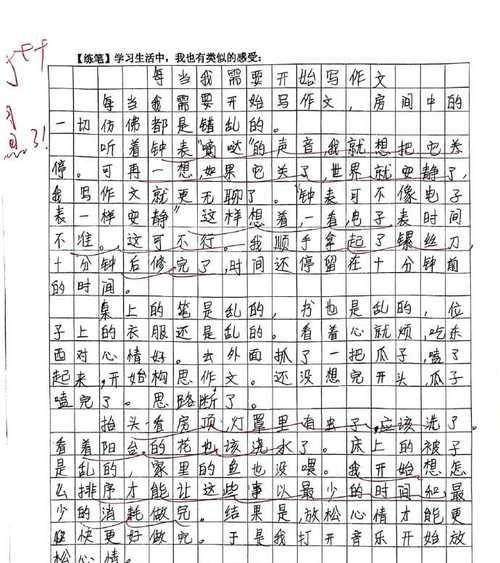 【练笔】学习生活中，我也有类似的感受：
每当我需要开始写作文
每当我需要开始写作文，房间中的
一切仿佛都是错乱的。
听着钟表“嘀哒”的声音，我就想把它关
停。可再一想如果它关了，世界就安静了，
我写作文就更无聊了。“钟表可不像电子
表一样安静”这样想着，一看，电子表时间
不准。这可不行。我顺手拿起了镙丝刀，
十分钟后修完了，时间还停留在十分钟前
的时间。
桌上的笔是乱的，书也是乱的，位
子上的衣服还是乱的。看着心就烦，吃东
西对心情好。去外面抓了一把瓜子，嗑了
起来，开始构思作文。还没想完开头，瓜子
嗑完了。思路断了。
抬头一看房顶，灯罩里有虫子，应该洗了。
看着阳台的花也该浇水了。床上的被子
是乱的，家里的鱼也没喂。我开始想怎
么排序才能让这些事以最少的时间和最
少的消耗做完。结果是，放松心情才能更
快更好做完。于是我打开音乐开始放
松心情。